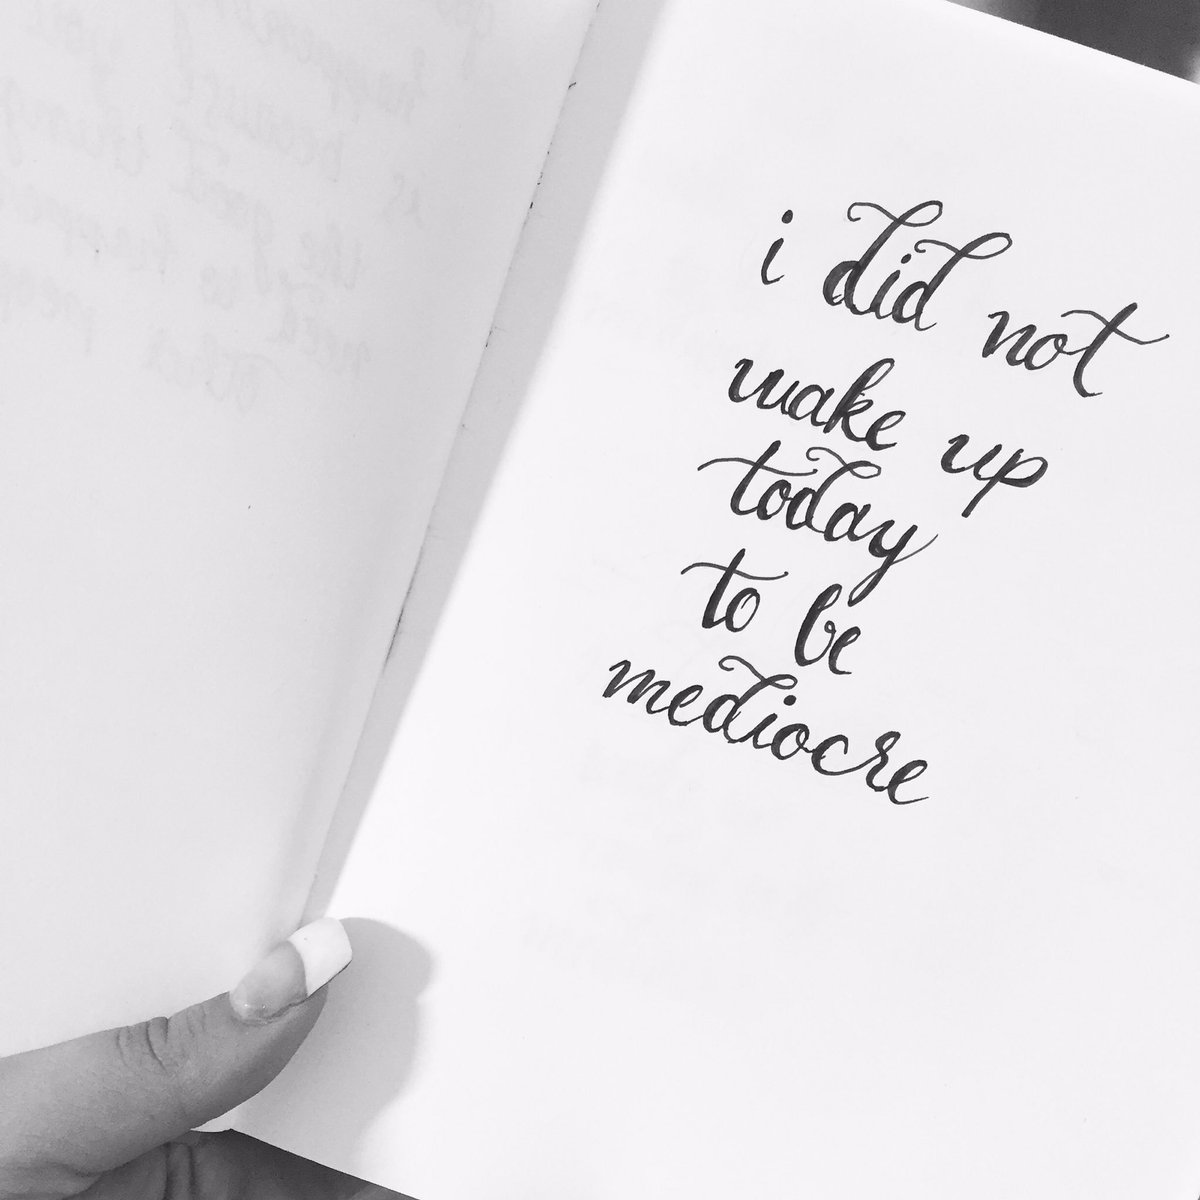 i did not
wake up
today
to be
mediocre